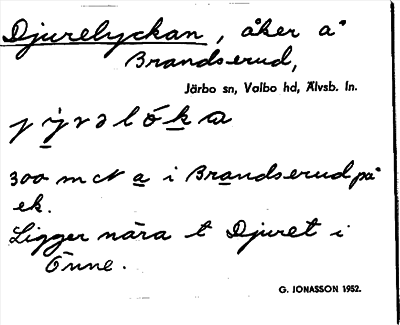 Djurelyckan, åker å
Brandserud,
Järbo sn, Valbo hd, Älvsb. ln.
300 m N a i Brandserud på
ek.
Ligger nära t Djuret i
Önne.
G. JONASSON 1952.